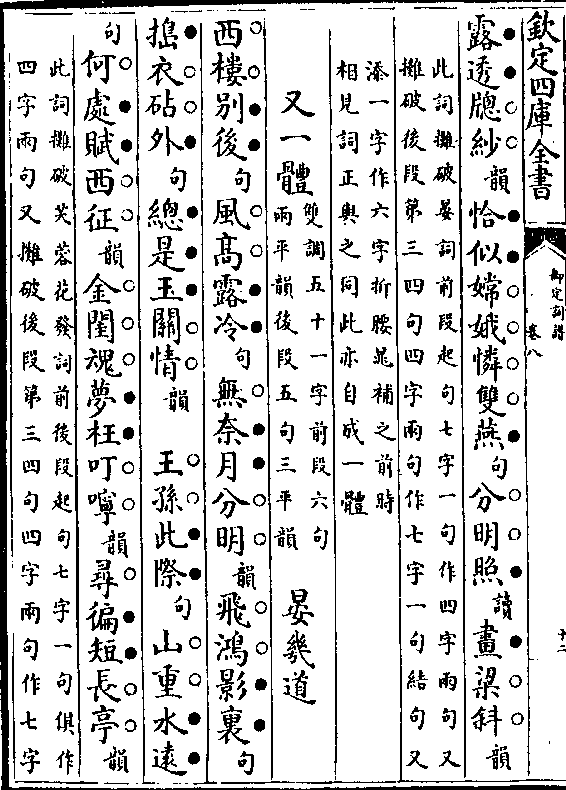 欽定四庫全書
御定詞譜
卷八
十二
露透牕紗韻恰似嫦娥憐雙燕句分明照讀畫梁斜韻
此詞攤破晏詞前段起句七字一句作四字兩句又
攤破後段第三四句四字兩句作七字一句結句又
添一字作六字折腰晁補之前時
相見詞正與之同此亦自成一體
又一體
雙調五十一字前段六句
兩平韻後段五句三平韻
晏幾道
西樓別後句風高露冷句無奈月分明韻飛鴻影裏句
搗衣砧外句總是玉關情韻 王孫此際句山重水遠
句何處賦西征韻金閨魂夢枉叮嚀韻尋徧短長亭韻
此詞攤破芙蓉花發詞前後段起句七字一句俱作
四字兩句又攤破後段第三四句四字兩句作七字